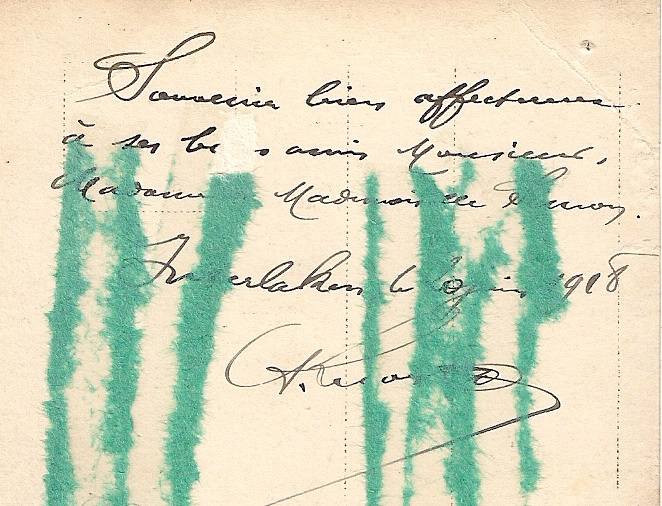 Souvenir bien affectueux
à ses bons amis Monsieur,
Madame Mademoiselle Simon.
Interlaken le juin 1918